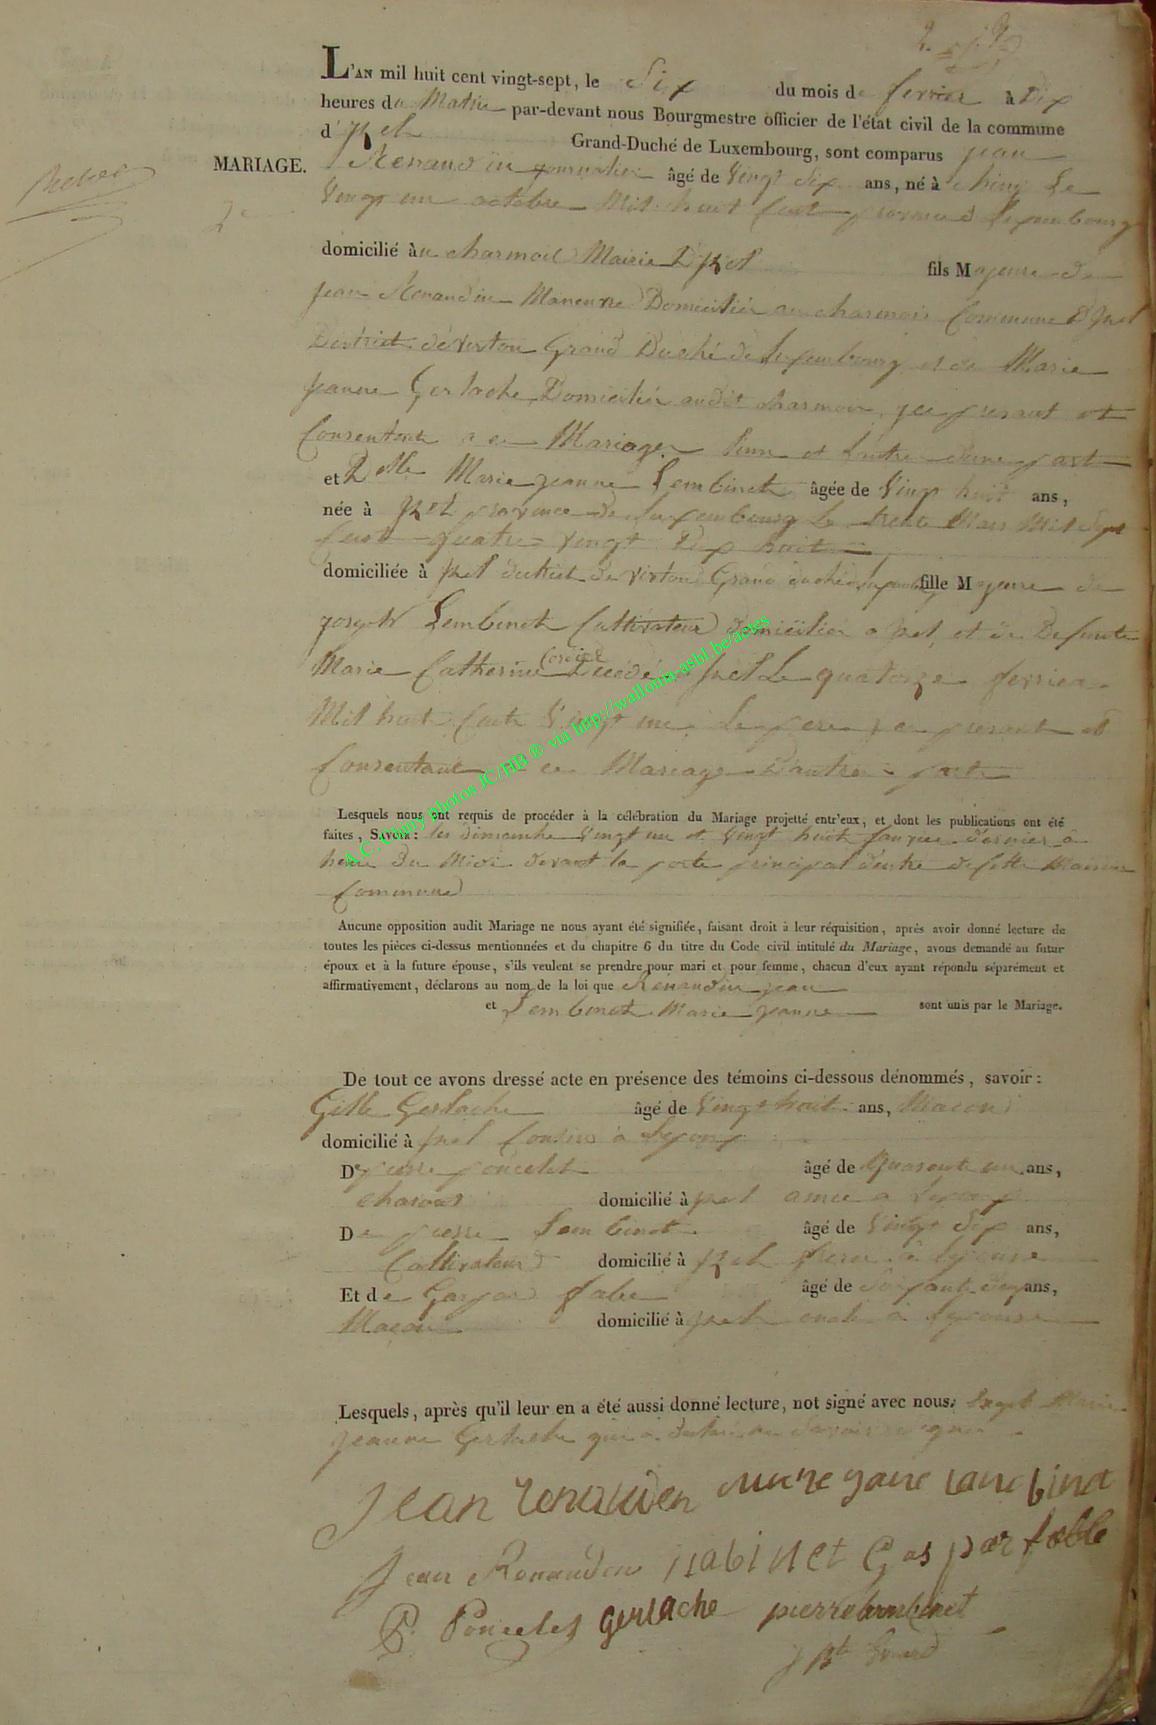 L'AN mil huit cent vingt-sept, le Six du mois de fevrier à Dix
heures du Matin par-devant nous Bourgmestre officier de l'état civil de la commune
d'Izel Grand-Duché de Luxembourg, sont comparus jean
MARIAGE.
Renaudin journalier âgé de Vingt Six ans, né à Chiny Le
2e
Vingt un octobre Mil huit Cent province de Luxembourg
domicilié au charmois Mairie D'Izel fils Majeure de
jean Renaudin Maneuvre Domicilier au charmois Commune D'Izel
District de virton Grand Duché de Luxembourg et de Marie
jeanne Gerlache Domicilier audit charmois, ici present et
Consentant a ce Mariage l'un et l'autre d'une part
et Delle Marie jeanne Lembinet âgée de Vingt huit ans,
née à Izel province de Luxembourg le trente Mars Mil Sept
Cent quatre vingt Dix huit
domiciliée à Izel district de virton Grand duché fille Majeure de
joseph Lembinet Cultivateur domicilier a Izel et de Defunte
Marie Catherine Décédé a Izel Le quatorze fevrier
Mil huit Cent Vingt un Le pere ici present et
Consentant a ce Mariage D'autre part
Lesquels nous ont requis de procéder à la célébration du Mariage projetté entr'eux, et dont les publications ont été
faites, SAVOIR: les dimanche Vingt un et Vingt huit janvier dernier à
heure du Midi devant la porte principal d'entré de Cette Maison
Commune
Aucune opposition audit Mariage ne nous ayant été signifiée, faisant droit à leur réquisition, après avoir donné lecture de
toutes les pièces ci-dessus mentionnées et du chapitre 6 du titre du Code civil intitulé du Mariage, avons demandé au futur
époux et à la future épouse, s'ils veulent se prendre pour mari et pour femme, chacun d'eux ayant répondu séparément et
affirmativement, déclarons au nom de la loi que Renaudin jean
et Lembinet Marie jeanne sont unis par le Mariage.
De tout ce avons dressé acte en présence des témoins ci-dessous dénommés, savoir:
Gille Gerlache âgé de Vingt huit ans, Macon
domicilié à Izel Cousin a Lepoux
De pierre poncelet âgé de Quarante un ans,
charon domicilié à Izel amie a Lepoux
De pierre Lembinet âgé de Vingt Six ans,
Cultivateur domicilié à Izel frere à Lepouse
Et de Gaspard fable âgé de Soixante ans,
Maçon domicilié à Izel oncle a Lepouse
Lesquels, après qu'il leur en a été aussi donné lecture, not signé avec nous, Marie
jeanne Gerlache qui a declaré ne Savoir signer
Jean renauden marie jane lanbinet
Jean Renaudin labinet Gaspar fable
P. Poncelet gerlache pierre lembinet
A.C. Chiny photos JC/HB ® via http://wallonia-asbl.be/actes